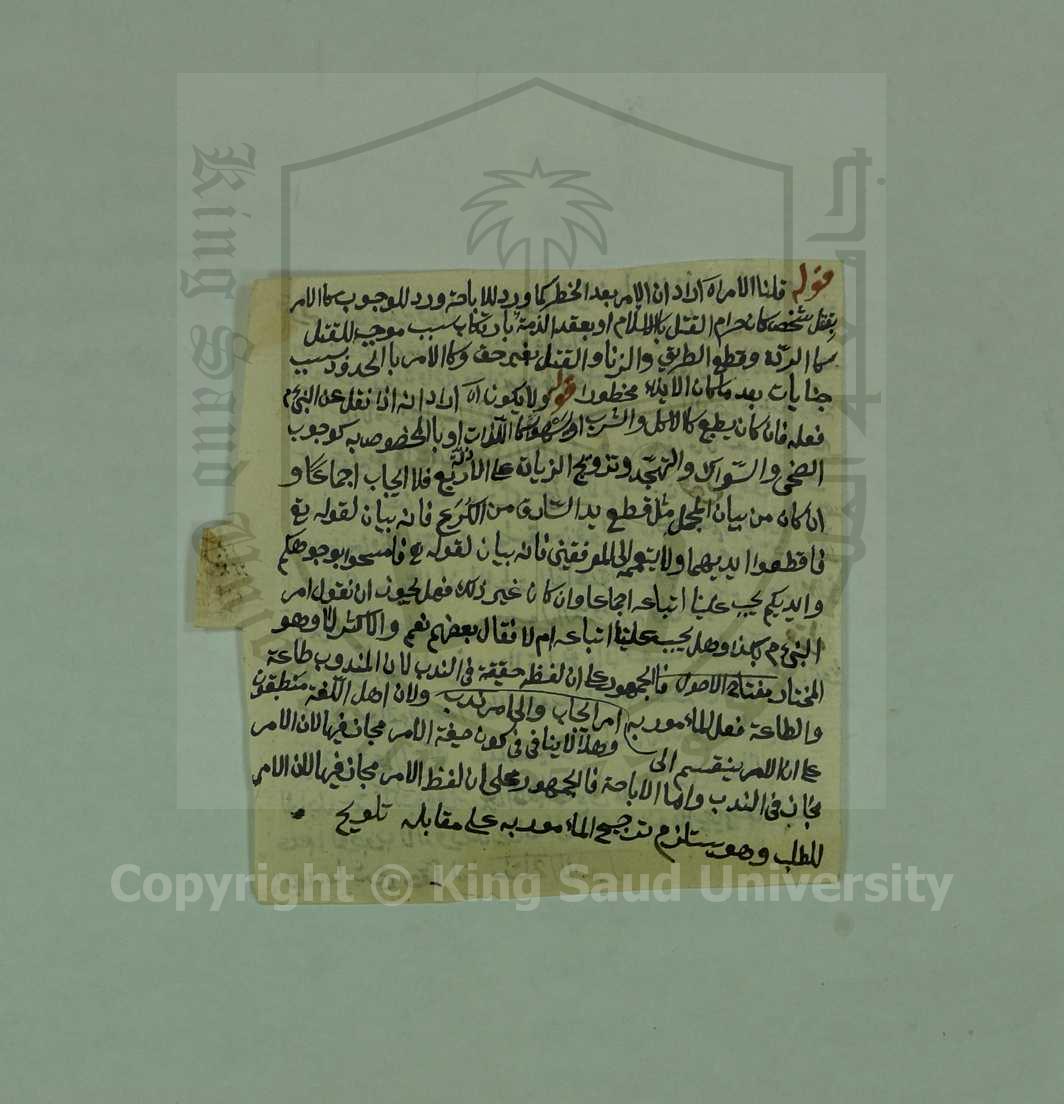 قوله قلنا الامر اه اراد ان الامر بعد الحظر كما ورد للاباحة ورد للوجوب كما الامر
بقتل شخص كان حرام القتل بالاسلام او بعقد الذمة بارتكاب سبب موجب للقتل
كما الردة وقطع الطريق والزنا والقتل بغير حق وكما الامر بالحدود بسبب
جنايات بعد ما كان الايذاء محظورا قوله ولا يكون اه اراد انه اذا نقل عن النبي عم
فعله فان كان بطبع كالاكل والشرب او بالخصوص به كوجوب
الضحى والسواك والتهجد وتزويج الزيادة على الاربع فلا ايجاب اجماعا و
ان كان من بيان المجمل مثل قطع يد السارق من الكوع فانه بيان لقوله تع
فاقطعوا ايديهما ولا يتعمم الى المرفقين فانه بيان لقوله تع فامسحوا بوجوهكم
وايديكم يجب علينا اتباعه اجماعا وان كان غير ذلك فهل يجوز ان نقول امر
النبي عم بكذا وهل يجب علينا اتباعه ام لا فقال بعضهم نعم والاكثر لا وهو
المختار مفتاح الاصول فالجمهور على ان لفظه حقيقة في الندب لان المندوب طاعة
والطاعة فعل المأمور به ولان اهل اللغة منطبقون
على ان الامر ينقسم الى امر ايجاب والى امر ندب وهذا لا ينافي في كون صيغة الامر مجاز فيها لان الامر
مجاز في الندب واما الاباحة فالجمهور على ان لفظ الامر مجاز فيها لان الامر
للطلب وهو يستلزم ترجيح المأمور به على مقابله تلويح
King Saud University
Copyright © King Saud University